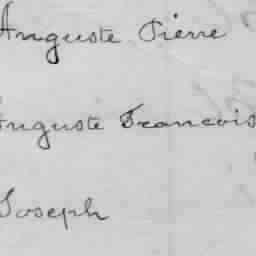 Auguste Pierre
Auguste Francois
Joseph